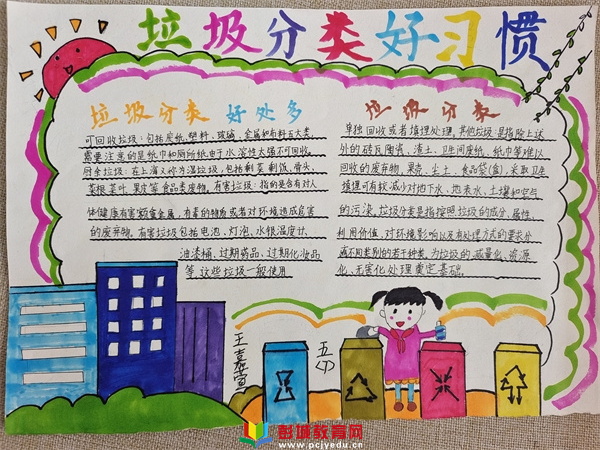 垃圾分类好习惯
垃圾分类 好处多
可回收垃圾:包括废纸,塑料,玻璃,金属和布料五大类,
需要注意的是纸巾和厕所纸由于水溶性太强不可回收。
厨余垃圾:在上海又称为湿垃圾,包括剩菜剩饭,骨头,
菜根菜叶,果皮等食品类废物。有害垃圾:指的是含有对人
体健康有害的重金属,有毒的物质或者对环境造成危害
的废弃物。有害垃圾包括电池、灯泡、水银温度计、
油漆桶、过期药品、过期化妆品
等,这些垃圾一般使用
垃圾分类
单独回收或者填埋处理,其他垃圾是指除上述
外的砖瓦陶瓷,渣土,卫生间废纸、纸巾等难以
回收的废弃物,果壳、尘土、食品袋(盒),采取卫
填埋可有效减少对地下水,地表水,土壤和空气
的污染。垃圾分类是指按照垃圾的成分、属性、
利用价值,对环境影响以及有处理方式的要求分
成不同类别的若干种类。为垃圾的减量化、资源
化、无害化处理奠定基础。
五(7)
彭城教育网
www.pcjyedu.cn